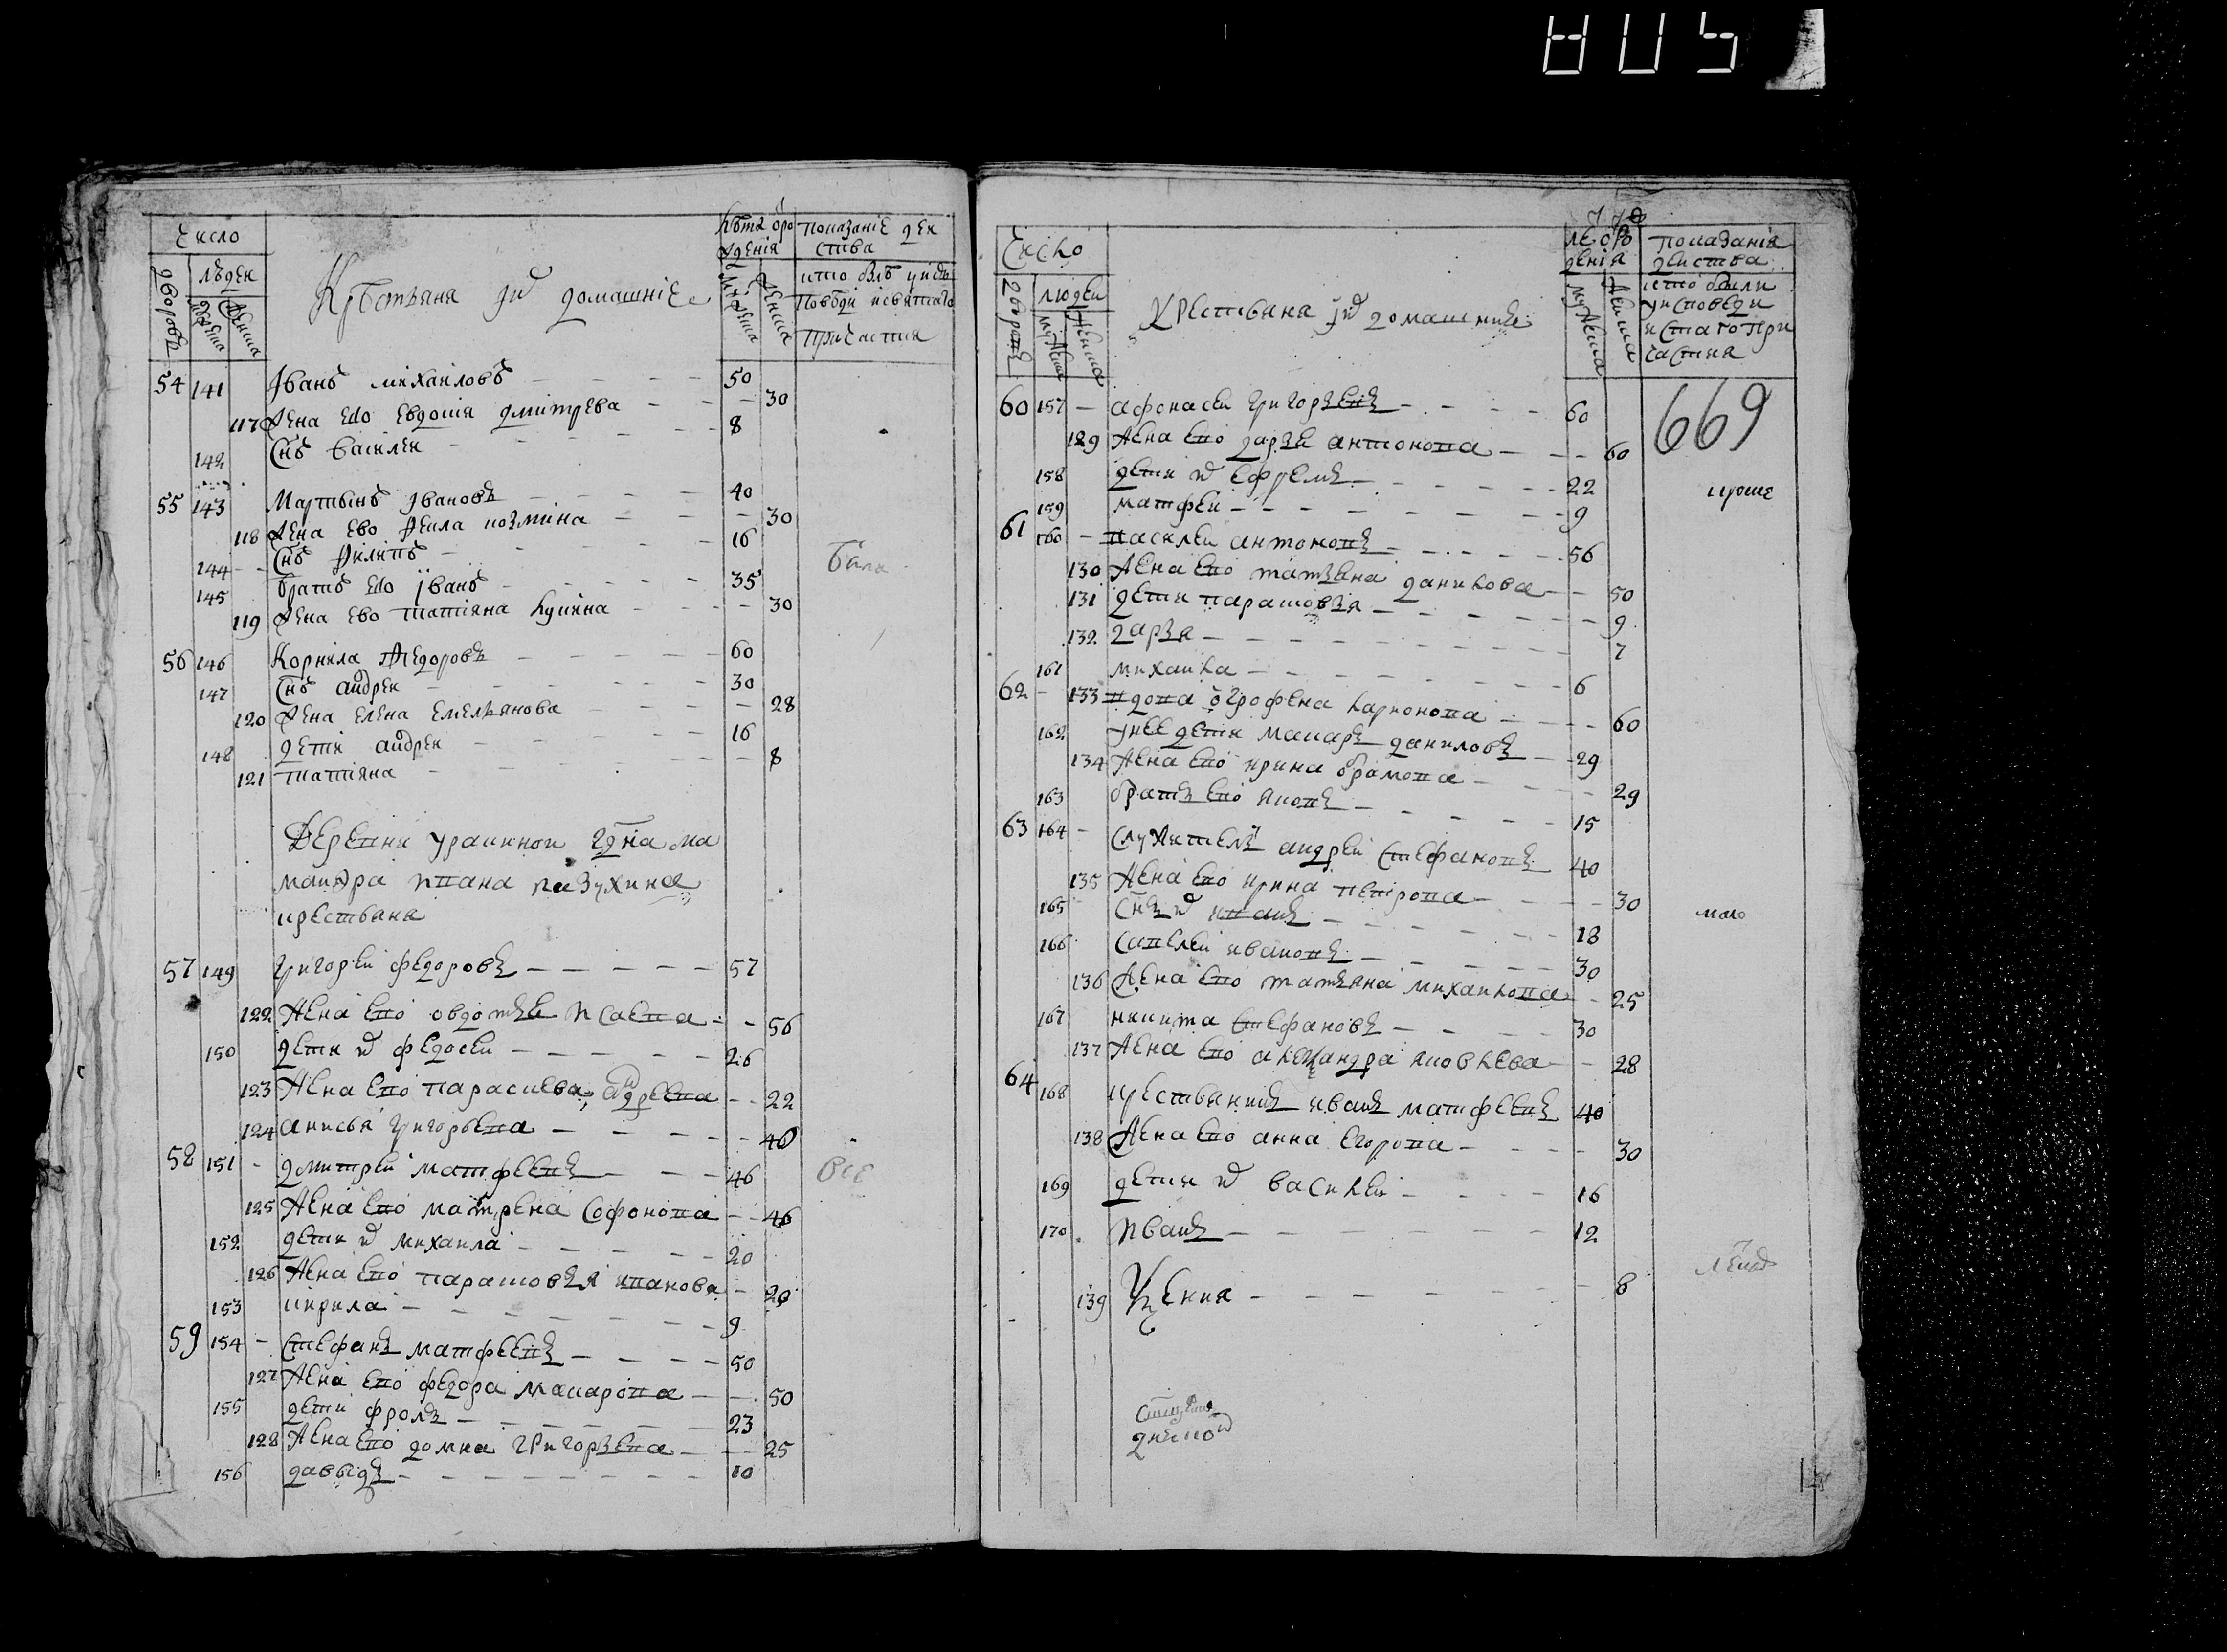 Число
дворовъ
людей
мужеска
женска
Крестьяня ихъ домашніе
лѣта отро
жденія
мужеска
женска
показаніе дей
ства
кто былъ у испо
поведи и святаго
причастия
54 141 Іванъ михайловъ 50
117 жена его евдокія дмитрева 30
142 Снъ василеи 8
55 143 Мартынъ Івановъ 40
118 жена ево Фекла козмина 30
144 Снъ Филипъ 16
145 братъ ево іванъ 35
119 жена ево татіяна лукина 30
56 146 Корнила Федоровъ 60
147 Снъ андреи 30
120 жена елена емельянова 28
148 дети андреи 16
121 татіяна 8
были
Деревни украиной гдна ма
маиора ивана пазухина
крестьяня
57 149 григореи федоровъ 57
122 жена ево овдотья исаева 56
150 дети их федосеи 26
123 жена ево парасковя андреева 22
124 анисья григорьева 40
58 151 дмитреи матфеевъ 46
125 жена ево матрена софонова 46
152 дети их михаила 20
126 жена ево парасковья иванова 20
153 кирила 9
все
59 154 стефанъ матфеевъ 50
127 жена ево федора макарова 50
155 дети фролъ 23
128 жена ево домна григорьева 25
156 давыдъ 10
Число
дворовъ
людеи
мужеска
женска
крестьяня их домашние
мужеска
женска
показания
деиства
кто были
у исповеди
и стаго при
частия
669
60 157 афонасеи григорьевъ 60
129 жена ево дарья антонова 60
158 дети их ефремъ 22
159 матфеи 9
кроме
61 160 василеи антоновъ 56
130 жена ево татьяна данилова 50
131 дети парасковья 9
132 дарья 7
161 михаила 6
62 133 вдова огрофена ларионова 60
162 у нее дети макаръ даниловъ 29
134 жена ево ирина абрамова 29
163 братъ ево яковъ 15
63 164 служитель андреи стефановъ 40
135 жена ево ирина петрова 30
165 снъ их иванъ 18
мало
166 савелеи ивановъ 30
136 жена ево татьяна михаилова 25
167 никита стефановъ 30
137 жена ево александра яковлева 28
64 168 крестьянинъ иванъ матфеевъ 40
138 жена ево анна егорова 30
169 дети их василеи 16
170 иванъ 12
139 Ксения 8